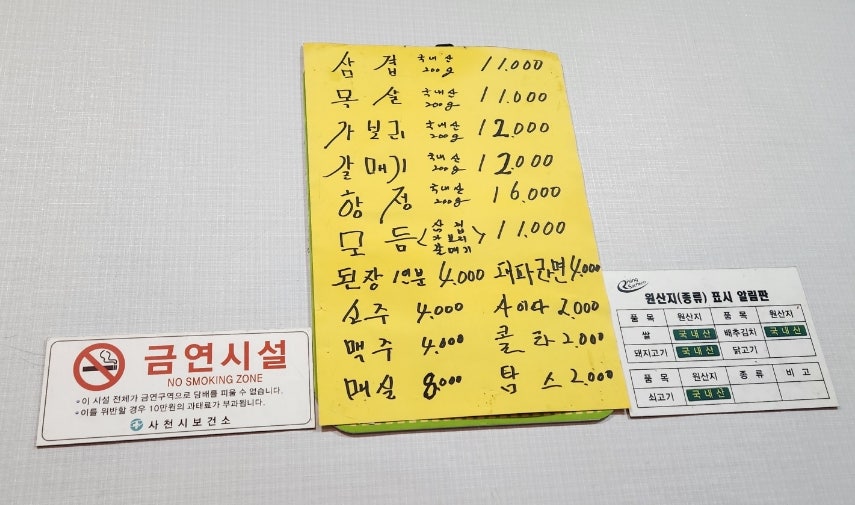 삼겹 국내산 200g 11.000
목살 국내산 200g 11.000
가보리 국내산 200g 12.000
갈매기 국내산 200g 12.000
항정 국내산 200g 16.000
모듬 <삼겹 가보리 갈매기> 11.000
된장 1인분 4.000
소주 4.000
맥주 4.000
매실 8.000
사이다 2.000
콜라 2.000
탐스 2.000
금연시설
NO SMOKING ZONE
이 시설 전체가 금연구역으로 담배를 피울 수 없습니다.
이를 위반할 경우 10만원의 과태료가 부과됩니다.
사천시보건소
원산지(종류) 표시 알림판
품목 원산지 품목 원산지
쌀 국내산 배추김치 국내산
돼지고기 국내산 닭고기
품목 원산지 종류 비고
쇠고기 국내산